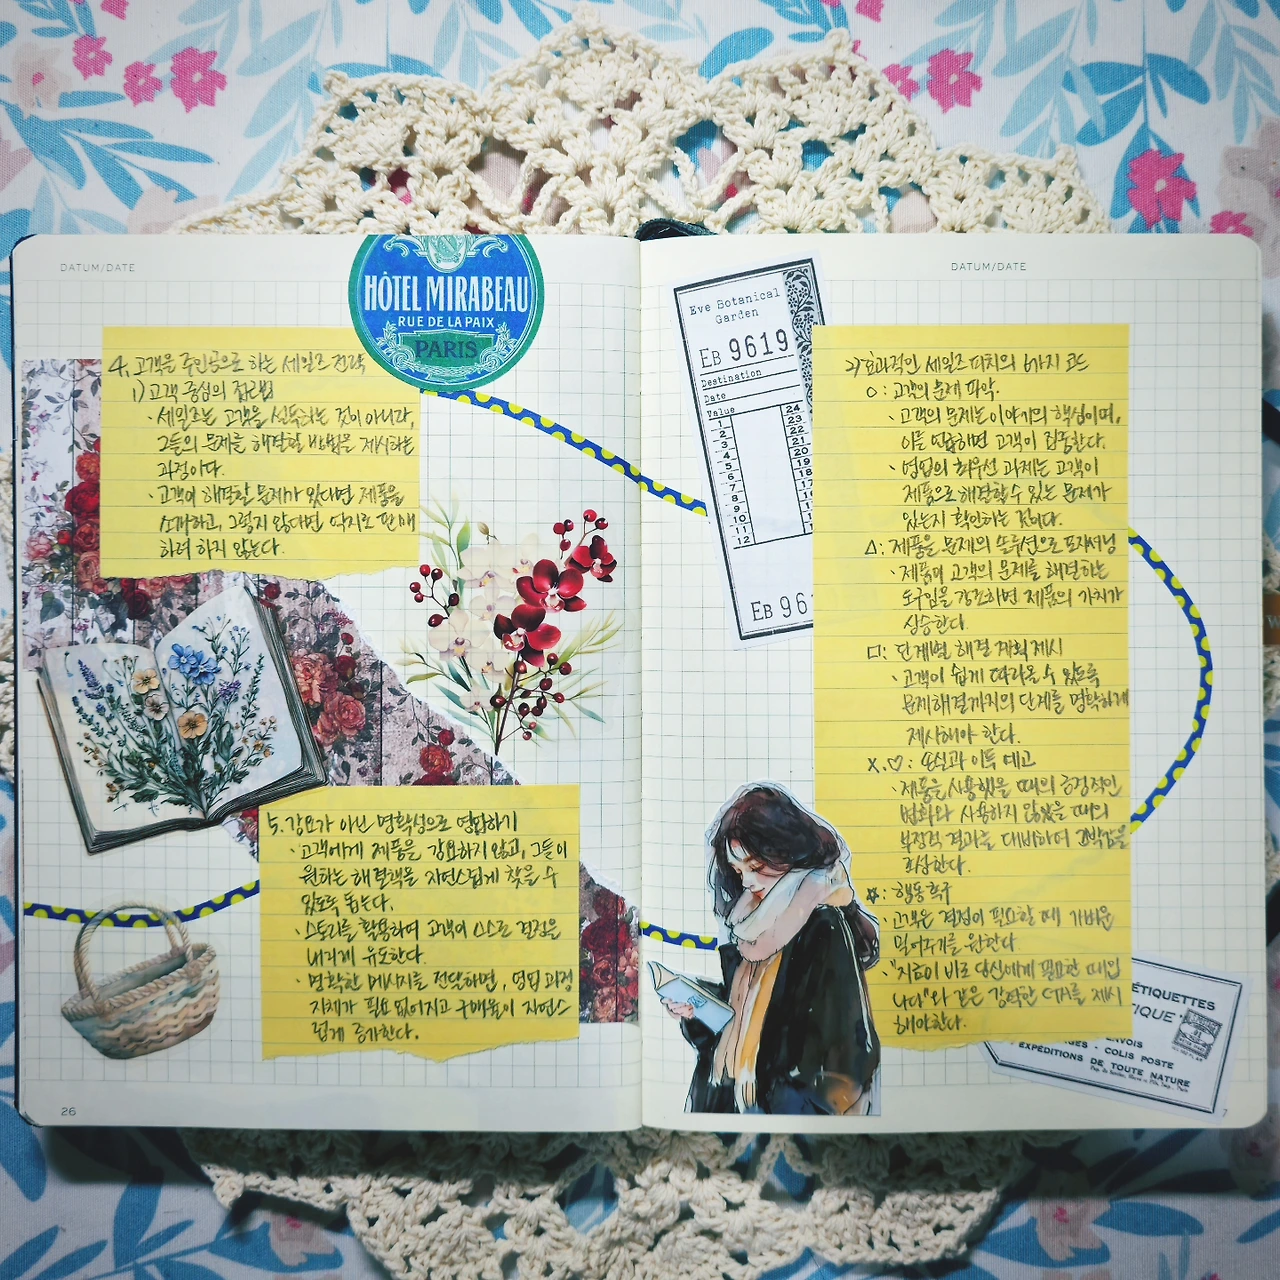 DATUM/DATE
HÔTEL MIRABEAU
RUE DE LA PAIX
PARIS
4. 고객을 주인공으로 하는 세일즈 전략
1) 고객 중심의 접근법
· 세일즈는 고객을 설득하는 것이 아니라,
그들의 문제를 해결할 방법을 제시하는
과정이다.
· 고객이 해결할 문제가 있다면 제품을
소개하고, 그렇지 않다면 억지로 판매
하려 하지 않는다.
5. 강요가 아닌 명확성으로 영업하기
· 고객에게 제품을 강요하지 않고, 그들이
원하는 해결책을 자연스럽게 찾을 수
있도록 돕는다.
· 스토리를 활용하여 고객이 스스로 결정을
내리게 유도한다.
· 명확한 메시지를 전달하면, 영업 과정
자체가 필요 없어지고 구매율이 자연스
럽게 증가한다.
26
DATUM/DATE
Eve Botanical
Garden
EB 9619
Destination
Date
Value
1
2
3
4
5
6
7
8
9
10
11
12
24
23
22
21
20
19
EB 96
2) 효과적인 세일즈 피치의 6가지 코드
○: 고객의 문제 파악.
· 고객의 문제는 이야기의 핵심이며,
이를 언급하면 고객이 집중한다.
· 영업의 최우선 과제는 고객이
제품으로 해결할 수 있는 문제가
있는지 확인하는 것이다.
△: 제품을 문제의 솔루션으로 포지셔닝
· 제품이 고객의 문제를 해결하는
도구임을 강조하면 제품의 가치가
상승한다.
□: 단계별 해결 계획 제시
· 고객이 쉽게 따라올 수 있도록
문제해결까지의 단계를 명확하게
제시해야 한다.
X, ♡: 손실과 이득 예고
· 제품을 사용했을 때의 긍정적인
변화와 사용하지 않았을 때의
부정적 결과를 대비하여 긴박감을
조성한다.
☆: 행동 촉구
· 고객은 결정이 필요할 때 가벼운
밀어주기를 원한다
· "지금이 바로 당신에게 필요한 때입
니다"와 같은 강력한 CTA를 제시
해야한다.
ÉTIQUETTES
TIQUE"
ENVOIS
COLIS POSTE
EXPÉDITIONS DE TOUTE NATURE
7